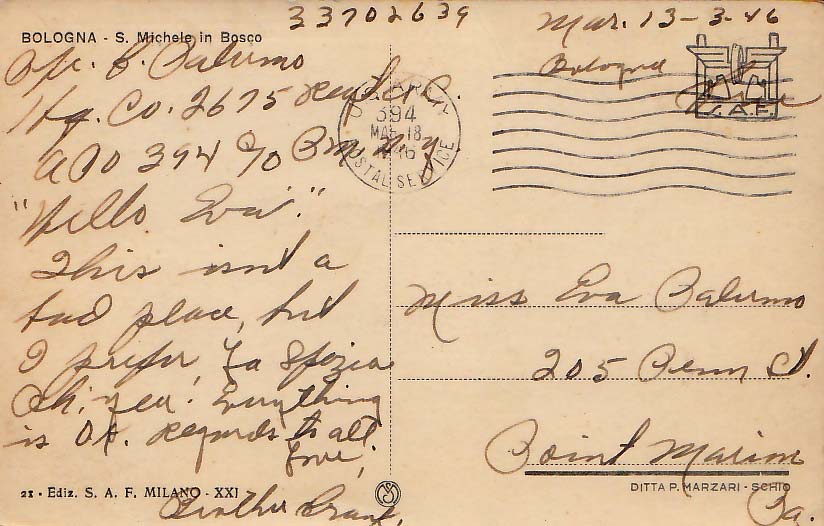 33702639 Mar. 13-3-46
BOLOGNA - S. Michele in Bosco
Pfc. F. Palermo Bologna
Hq. Co. 2675 Regt.
APO 394 c/o P.M. N.Y.
U.S. ARMY
394
MAR 18
1946
POSTAL SERVICE
S.A.F.
"Hello Eva"
This isn't a
bad place, but
I prefer, La Spezia
Oh, yea! Everything
is OK. Regards to all
Love,
Brother Frank,
Miss Eva Palermo
205 Penn St.
Point Marion
Pa.
21 - Ediz. S. A. F. MILANO - XXI
DITTA P. MARZARI - SCHIO